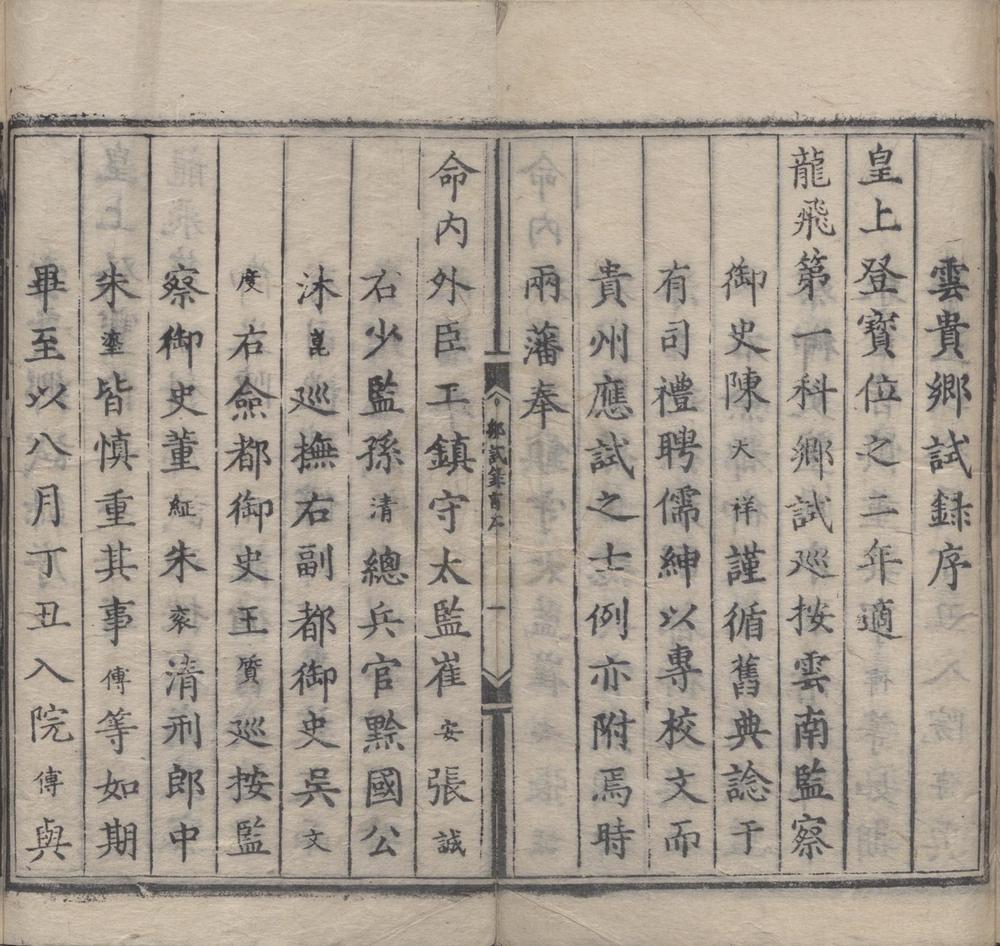 雲貴鄉試録序
皇上登寶位之二年適
龍飛第一科鄉試巡按雲南監察
御史陳天祥謹循舊典諗于
有司禮聘儒紳以專校文而
貴州應試之士例亦附焉時
兩藩奉
鄉試錄前序 一
命內外臣工鎮守太監崔安張誠
右少監孫清總兵官黔國公
沐崑巡撫右副都御史吳文
度右僉都御史王質巡按監
察御史董紅朱衮清刑郎中
朱鑾皆慎重其事傳等如期
畢至以八月丁丑入院傳與